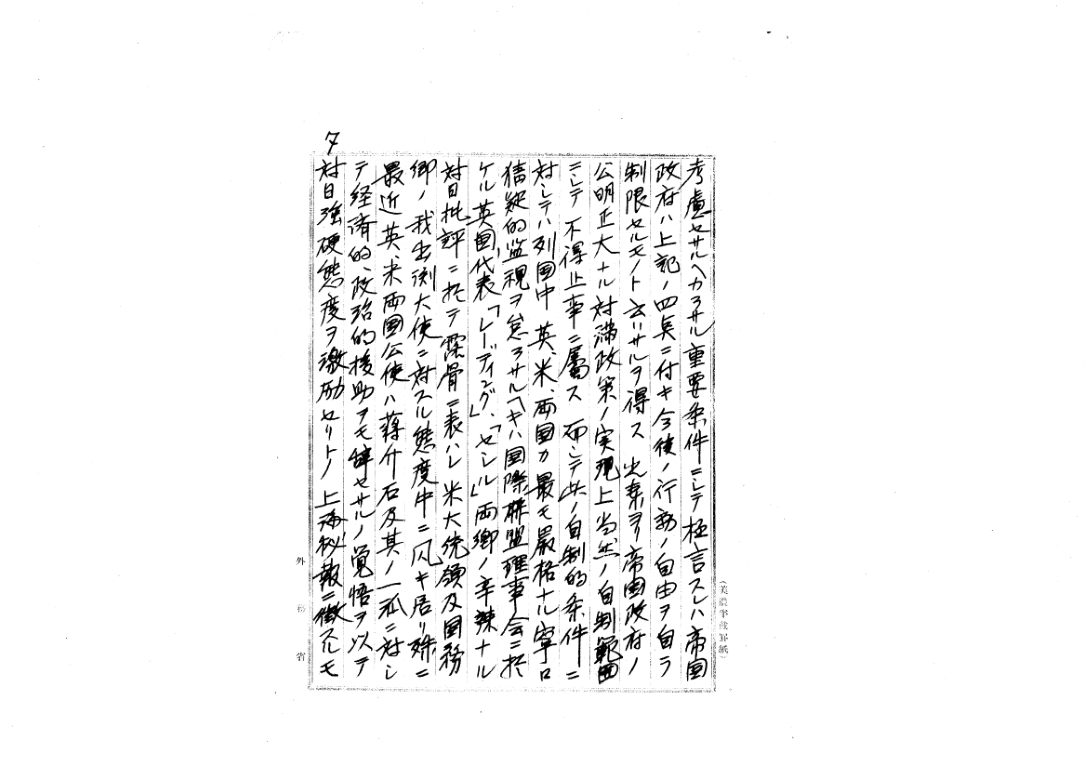 考慮セサルヘカラサル重要条件ニシテ極言スレハ帝国
政府ハ上記ノ四点ニ付キ今後ノ行動ノ自由ヲ自ラ
制限セルモノト云ハサルヲ得ス 出来ヨリ帝国政府ノ
公明正大ナル対満政策ノ実現上当然ノ自制範囲
ニシテ不得止事ニ属ス 而シテ此ノ自制的条件ニ
対シテハ列国中英、米、両国カ最モ厳格ナル寧ロ
猜疑的監視ヲ怠ラサルヘキハ国際聯盟理事会ニ於
ケル英国代表「レーディング」、「セシル」両卿ノ辛辣ナル
対日批評ニ於テ露骨ニ表ハレ米大統領及国務
卿ノ我出渕大使ニ対スル態度中ニ仄キ居リ殊ニ
最近英、米両国公使ハ蒋介石及其ノ一派ニ対シ
テ経済的、政治的援助ヲモ辞セサルノ覚悟ヲ以テ
対日強硬態度ヲ激励セリトノ上海秘報ニ徴スルモ
7
(美濃半截罫紙)
外務省